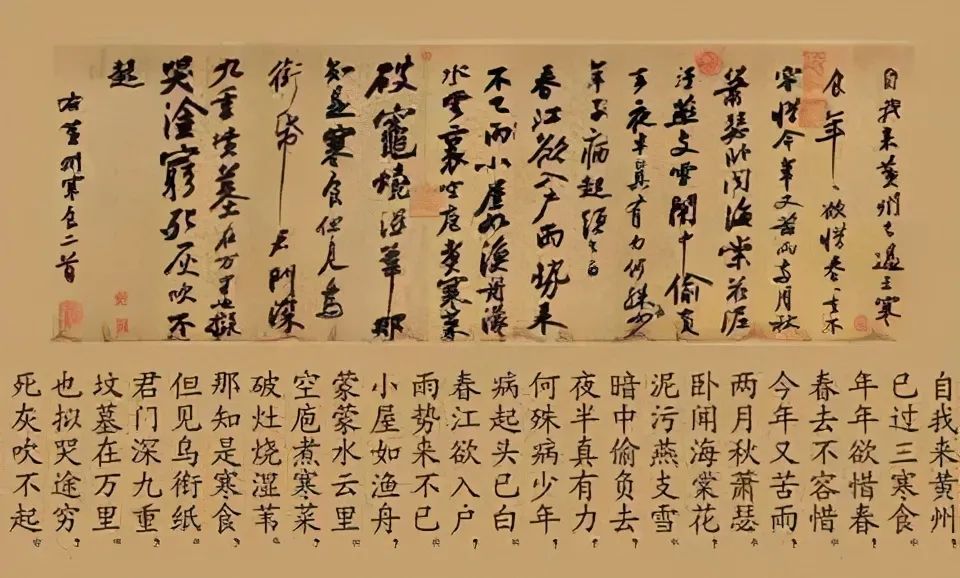 自我来黄州已過三寒
食年〻欲惜春〻去不
容惜今年又苦雨兩月秋
蕭瑟卧聞海棠花泥
汙燕支雪闇中偷負
去夜半真有力何殊少
年子病起頭已白
春江欲入户雨勢来
不已雨小屋如漁舟濛〻
水雲裏空庖煮寒菜
破竈燒濕葦那
知是寒食但見烏
銜帋君門深
九重墳墓在万里也擬
哭塗窮死灰吹不
起
右黄州寒食二首
自我来黄州
已过三寒食
年年欲惜春
春去不容惜
今年又苦雨
两月秋萧瑟
卧闻海棠花
泥污燕支雪
暗中偷负去
夜半真有力
何殊病少年
病起头已白
春江欲入户
雨势来不已
小屋如渔舟
蒙蒙水云里
空庖煮寒菜
破灶烧湿苇
那知是寒食
但见乌衔纸
君门深九重
坟墓在万里
也拟哭途穷
死灰吹不起